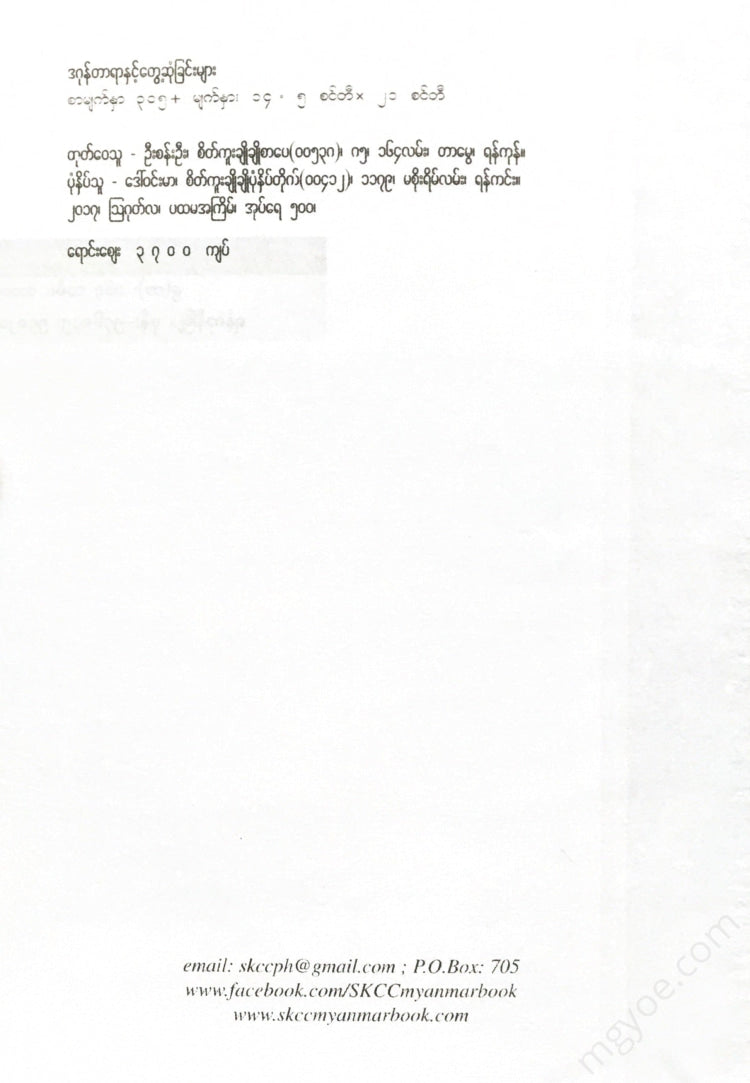 ဒဂုန်တာရာနှင့်တွေ့ဆုံခြင်းများ
စာမျက်နှာ ၃၁၅+ မျက်နှာ၊ ၁၄ . ၅ စင်တီ× ၂၁ စင်တီ
ထုတ်ဝေသူ - ဦးစန်းဦး၊ စိတ်ကူးချိုချိုစာပေ(၀၀၅၃၈)၊ ဂ၅၊ ၁၆၄လမ်း၊ တာမွေ၊ ရန်ကုန်။
ပုံနှိပ်သူ - ဒေါ်ဝင်းမာ၊ စိတ်ကူးချိုချိုပုံနှိပ်တိုက်(၀၀၄၁၂)၊ ၁၁၇၉၊ မစိုးရိမ်လမ်း၊ ရန်ကင်း။
၂၀၁၇၊ ဩဂုတ်လ၊ ပထမအကြိမ်၊ အုပ်ရေ ၅၀၀၊
ရောင်းဈေး ၃ ၇ ၀ ၀ ကျပ်
email: skccph@gmail.com ; P.O.Box: 705
www.facebook.com/SKCCmyanmarbook
www.skccmyanmarbook.com
mgyoe.com